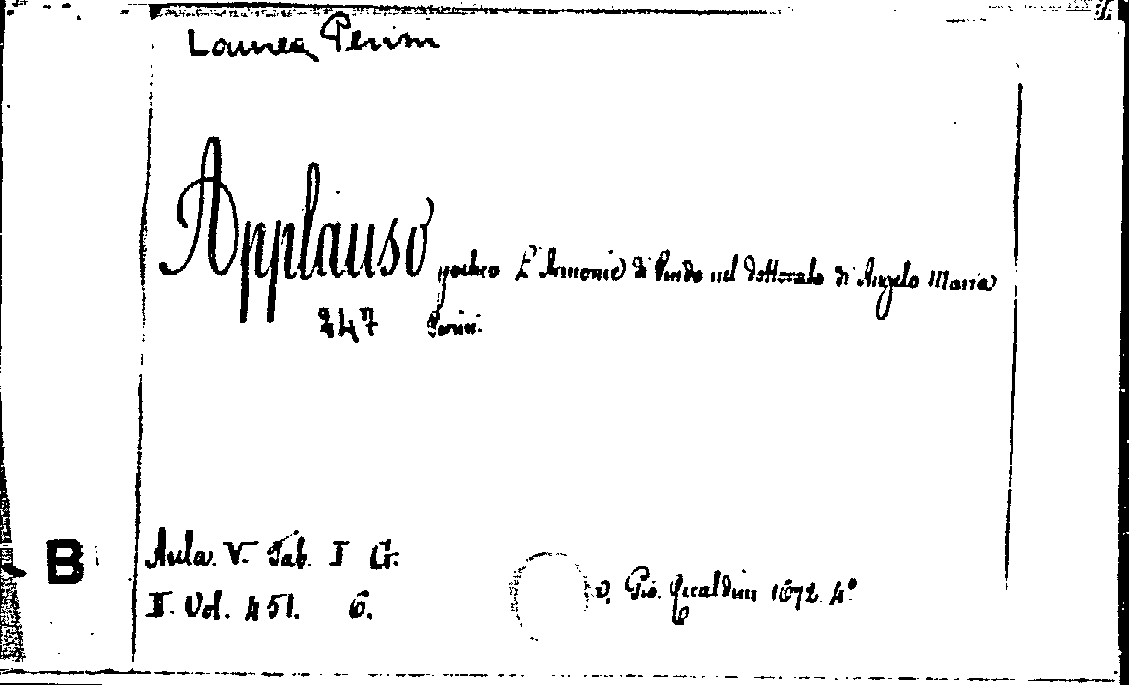 Laurea Perini
Applauso poetico L'Armonie di Pindo nel dottorato di Angelo Maria
247 Perini.
B Aula. V. Tab. I G.
II. Vol. 451. 6. Gio. 1672. 4°